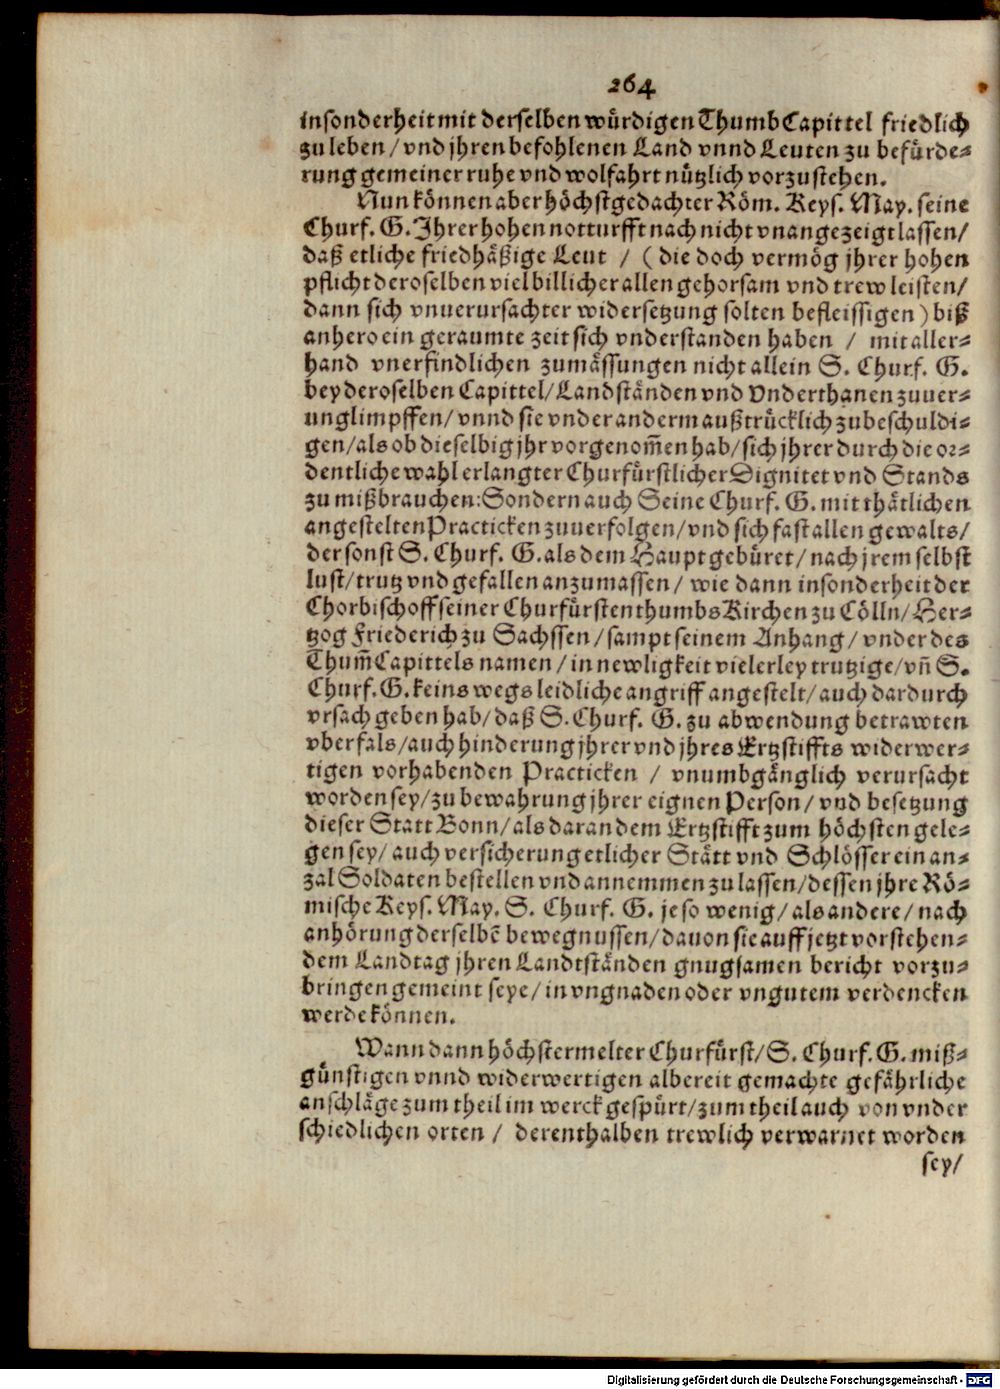 264
insonderheit mit derselben würdigen Thumb Capittel friedlich
zu leben / vnd jhren befohlenen Land vnnd Leuten zu befürde-
rung gemeiner ruhe vnd wolfahrt nützlich vorzustehen.
Nun können aber höchstgedachter Röm. Keys. May. seine
Churf. G. Jhrer hohen notturfft nach nicht vnangezeigt lassen/
daß etliche friedhäßige Leut / (die doch vermög jhrer hohen
pflicht deroselben viel billicher allen gehorsam vnd trew leisten/
dann sich vnuerursachter widersetzung solten befleissigen) biß
anhero ein geraumte zeit sich vnderstanden haben / mit aller-
hand vnerfindlichen zumässungen nicht allein S. Churf. G.
bey deroselben Capittel/Landständen vnd Vnderthanen zuuer-
unglimpffen/ vnnd sie vnder anderm außtrücklich zubeschuldi-
gen/als ob dieselbig jhr vorgenom̃en hab/sich jhrer durch die or-
dentliche wahl erlangter Churfürstlicher Dignitet vnd Stands
zu mißbrauchen: Sondern auch Seine Churf. G. mit thätlichen
angestelten Practicken zuuerfolgen/vnd sich fast allen gewalts/
der sonst S. Churf. G. als dem Haupt gebüret/nach jrem selbst
lust/trutz vnd gefallen anzumassen/ wie dann insonderheit der
Chorbischoff seiner Churfürstenthumbs Kirchen zu Cölln/Her-
tzog Friederich zu Sachssen/sampt seinem Anhang/vnder des
Thum̃ Capittels namen/in newligkeit vielerley trutzige/vñ S.
Churf. G. keins wegs leidliche angriff angestelt/auch dardurch
vrsach geben hab/daß S. Churf. G. zu abwendung betrawten
vberfals/auch hinderung jhrer vnd jhres Ertzstiffts widerwer-
tigen vorhabenden Practicken / vnumbgänglich verursacht
worden sey/zu bewahrung jhrer eignen Person/vnd besetzung
dieser Statt Bonn/als daran dem Ertzstifft zum höchsten gele-
gen sey/auch versicherung etlicher Stätt vnd Schlösser ein an-
zal Soldaten bestellen vnd annemmen zu lassen/dessen jhre Rö-
mische Keys. May. S. Churf. G. je so wenig/als andere/nach
anhörung derselbẽ bewegnussen/dauon sie auff jetzt vorstehen-
dem Landtag jhren Landtständen gnugsamen bericht vorzu-
bringen gemeint seye/in vngnaden oder vngutem verdencken
werde können.
Wann dann höchstermelter Churfürst/S. Churf. G. miß-
günstigen vnnd widerwertigen albereit gemachte gefährliche
anschläge zum theil im werck gespürt/zum theil auch von vnder
schiedlichen orten / derenthalben trewlich verwarnet worden
sey/
Digitalisierung gefördert durch die Deutsche Forschungsgemeinschaft - DFG